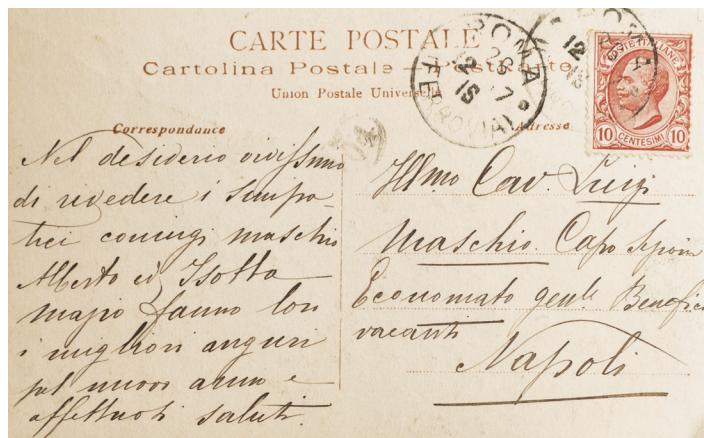 CARTE POSTALE
Cartolina Postale - Postkarte
Union Postale Universelle
ROMA
FERROVIA
12
15
POSTE ITALIANE
10 CENTESIMI 10
Correspondance
Nel desiderio vivissimo
di rivedere i simpa-
tici coniugi Maschio
Alberto ed Isotta
fanno loro
i migliori auguri
pel nuovo anno e
affettuosi saluti.
Adresse
Ill.mo Cav. Luigi
Maschio. Capo
Economato genle Benefici
vacanti
Napoli